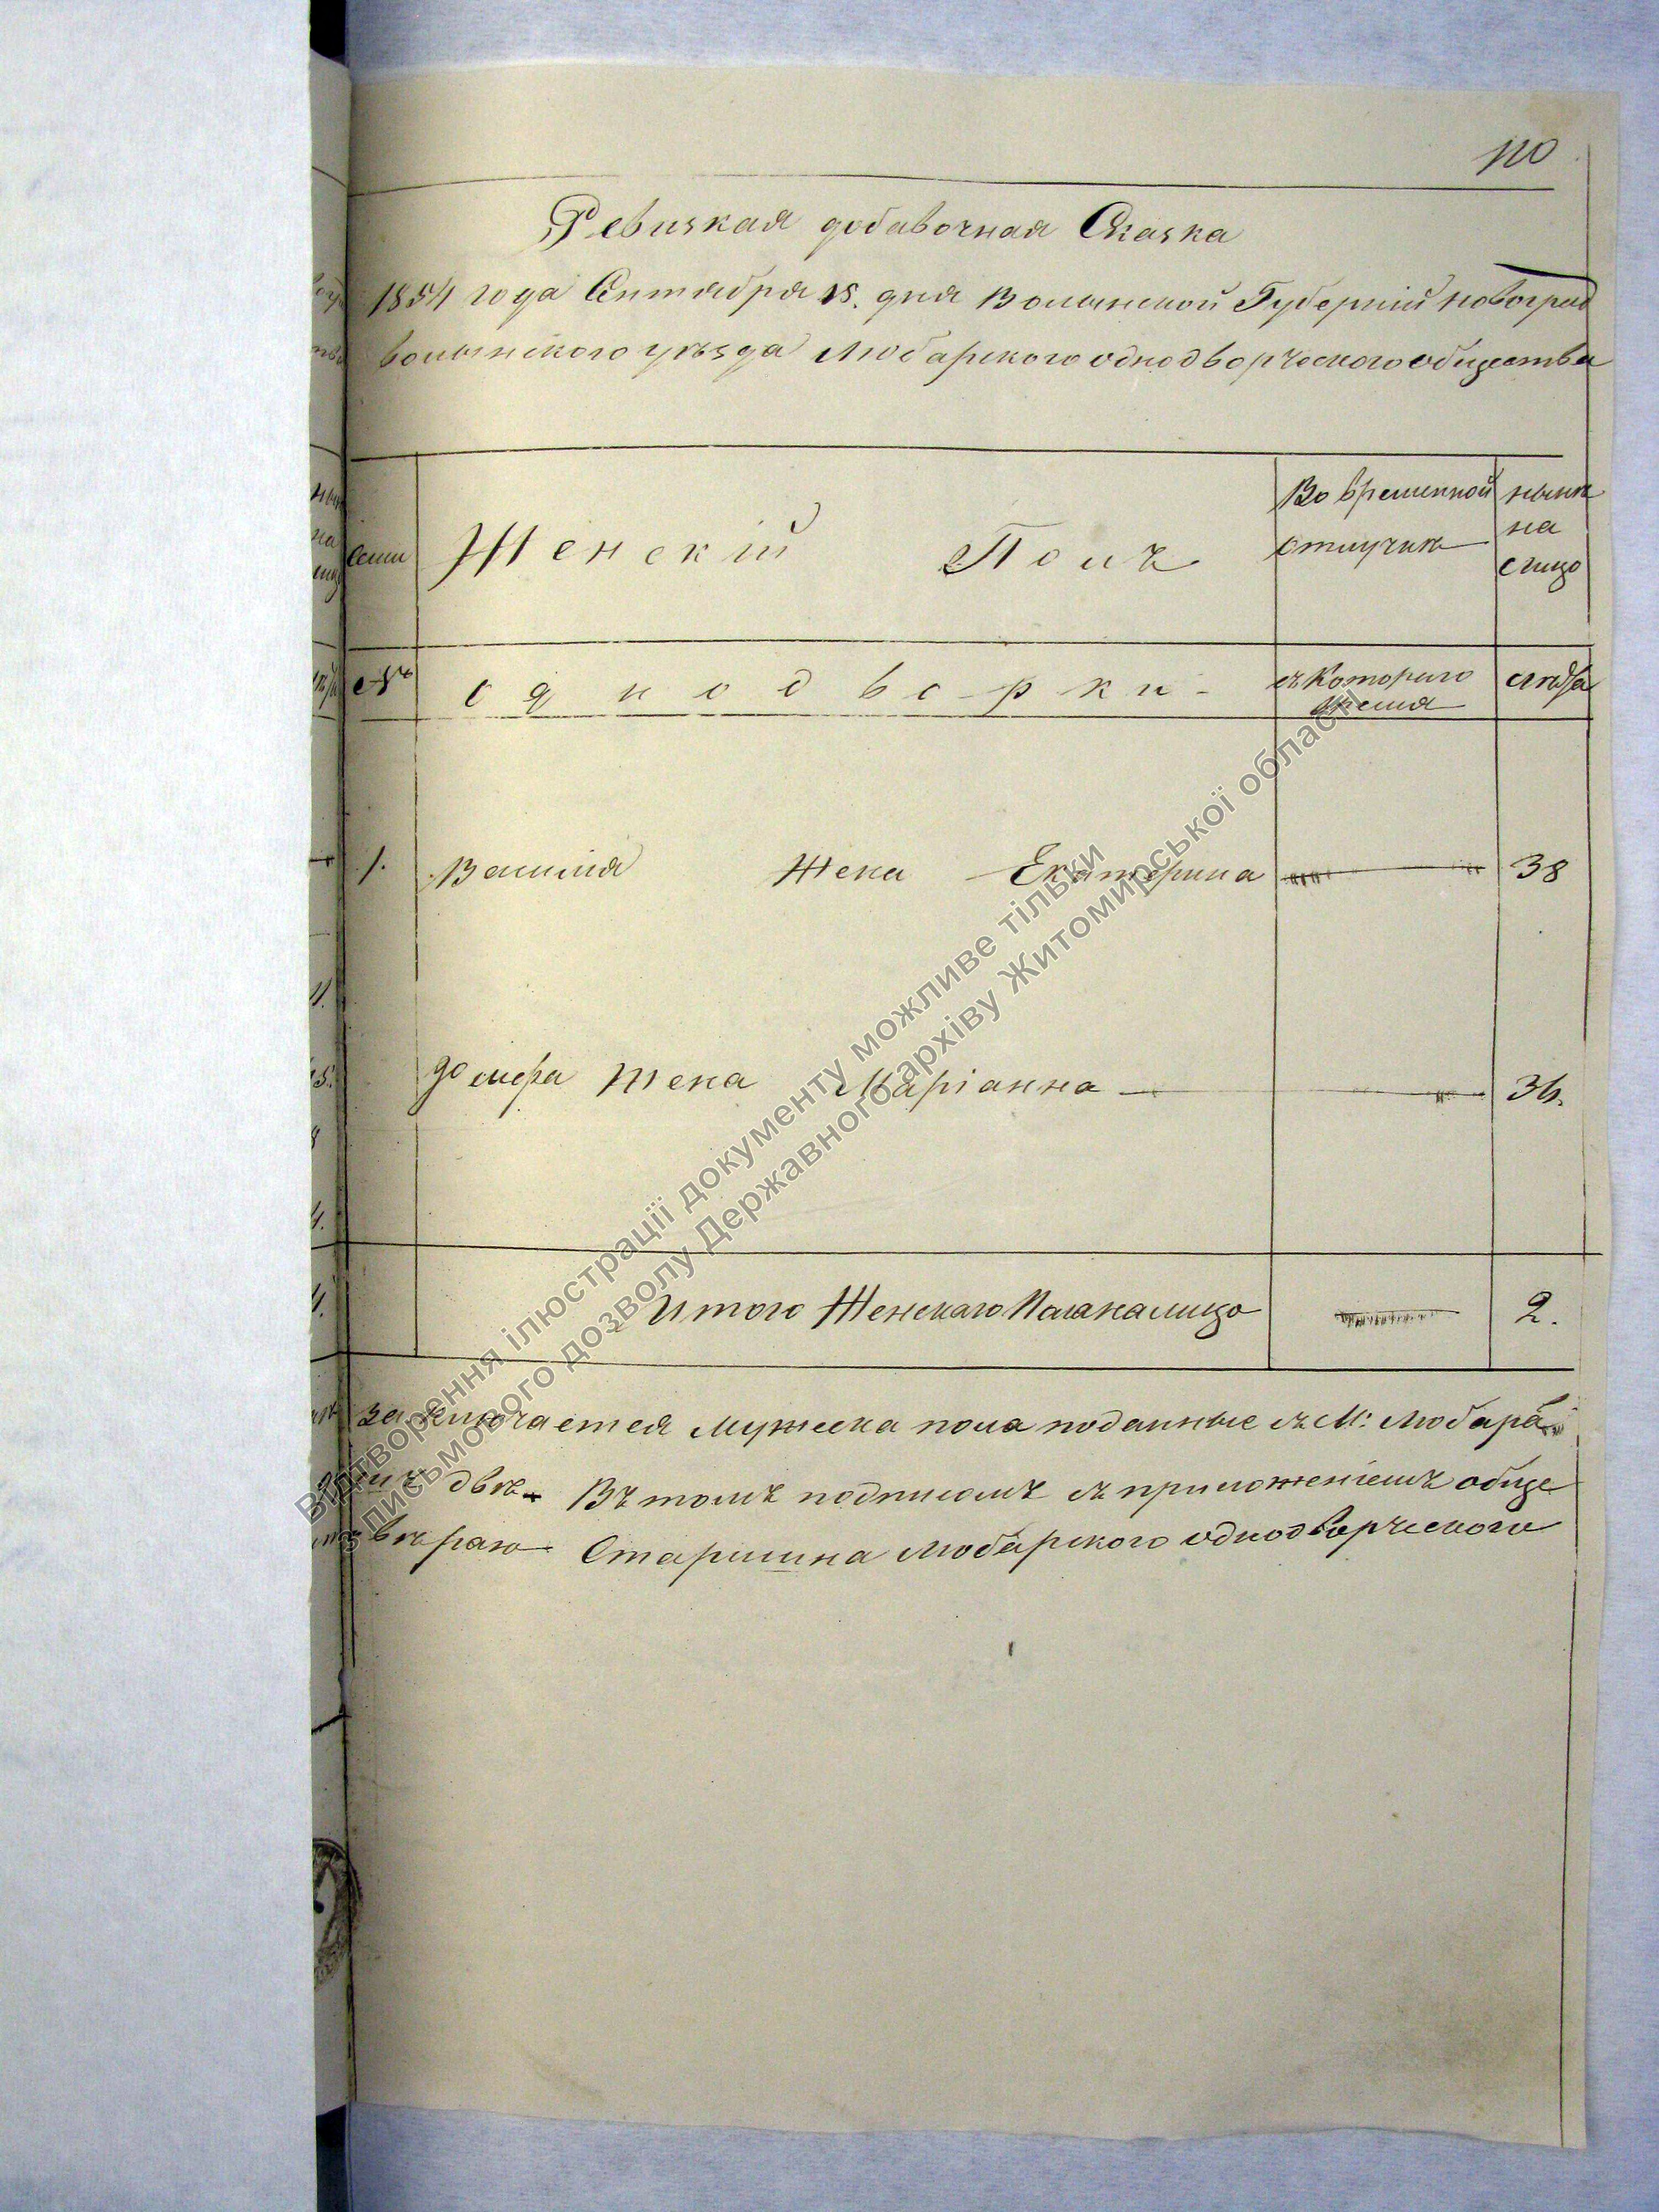 110
Ревизкая добавочная Сказка
1854 года Сентября 15. дня Волынской Губерніи Новоград
волынского уѣзда Любарского однодворческого общества
Семи Женскій Полъ Во временной отлучкѣ нынѣ на лицо
№ однодворки съ Которого время лѣта
1. Василія Жена Екатерина 38
жена Маріанна 36.
Итого Женскаго Пола на лицо 2.
заключается мужеска пола поданные съ М: Любара
двѣ Въ томъ подписомъ съ приложеніемъ обще
вѣряю Старшина Любарского однодворческого
Відтворення ілюстрації документу можливе тільки
з письмового дозволу Державного архіву Житомирської області